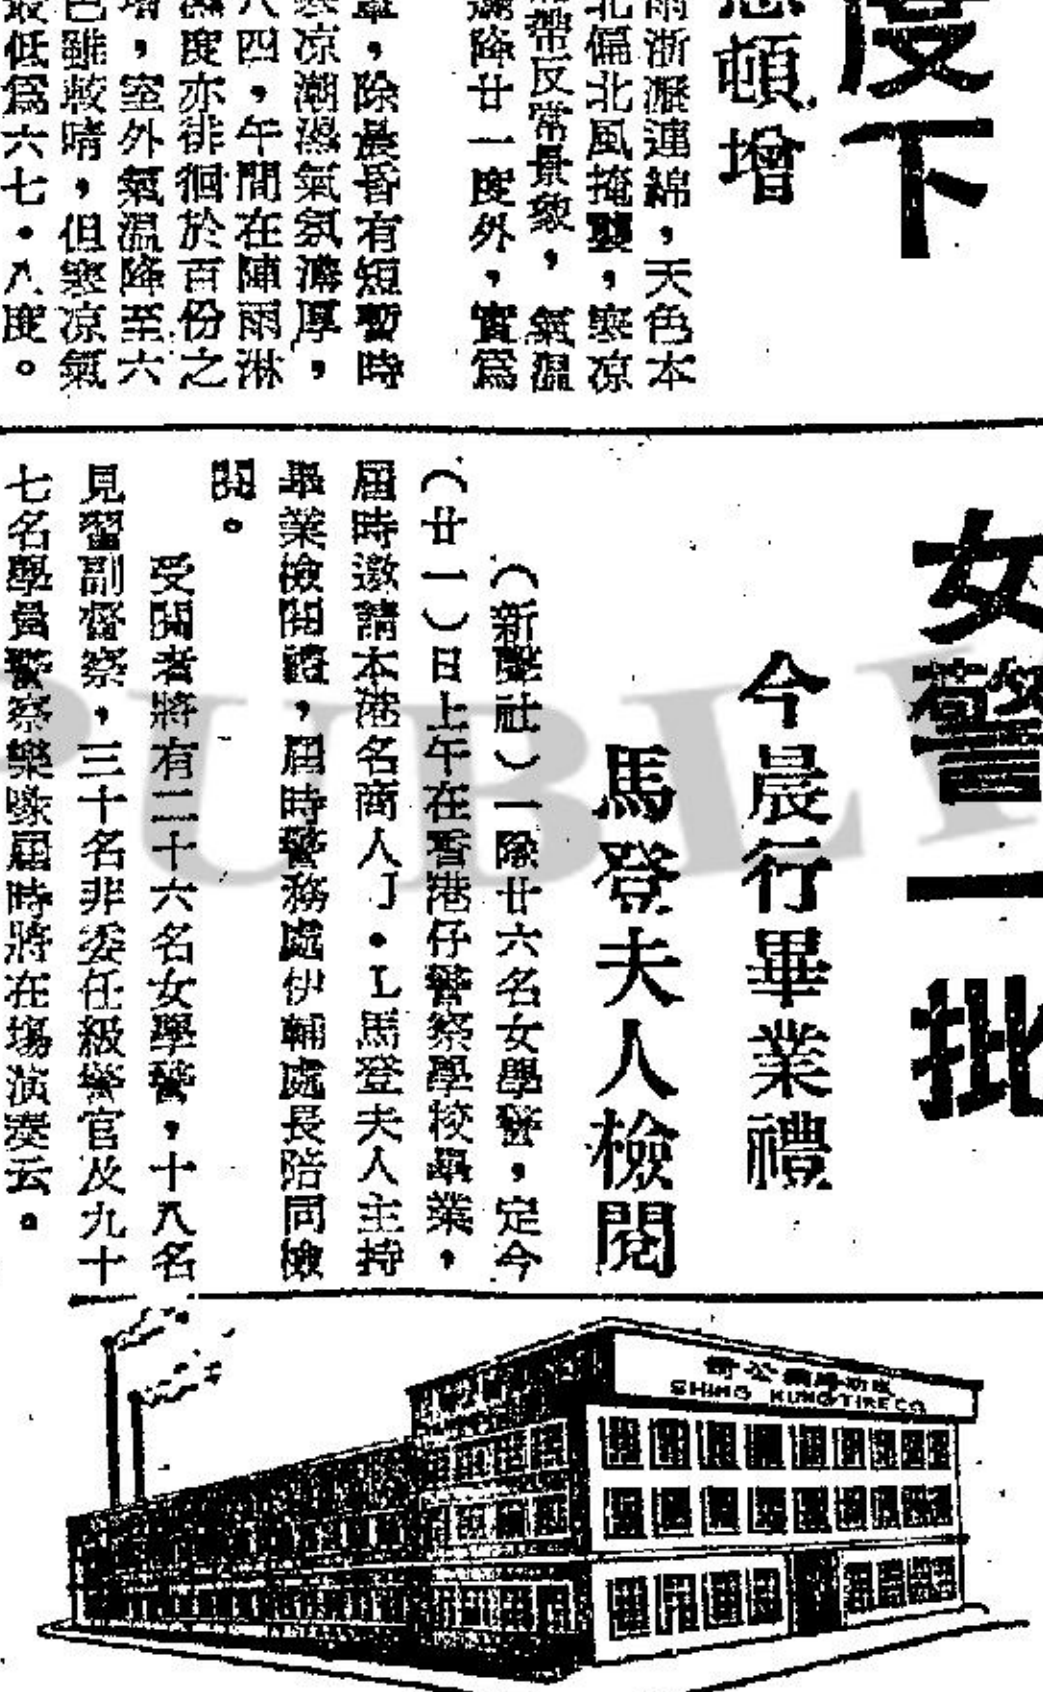 度下
頓增
雨淅瀝連綿，天色本
北偏北風掩襲，寒凉
帶反常景象，氣溫
降廿一度外，實爲
，除晨昏有短暫時
凉潮濕氣氛濃厚，
八四，午間在陣雨淋
濕度亦徘徊於百份之
增，室外氣溫降至六
色雖較晴，但寒凉氣
最低爲六七·八度。
女警一批
今晨行畢業禮
馬登夫人檢閱
（新聲社）一隊廿六名女學警，定今
（廿一）日上午在香港仔警察學校畢業，
屆時邀請本港名商人J·L馬登夫人主持
畢業檢閱禮，屆時警務處伊輔處長陪同檢
閱。
受閱者將有二十六名女學警，十八名
見習副督察，三十名非委任級警官及九十
七名學員警察樂隊屆時將在塲演奏云。
SHING KUNG TIRE CO
PUBLI